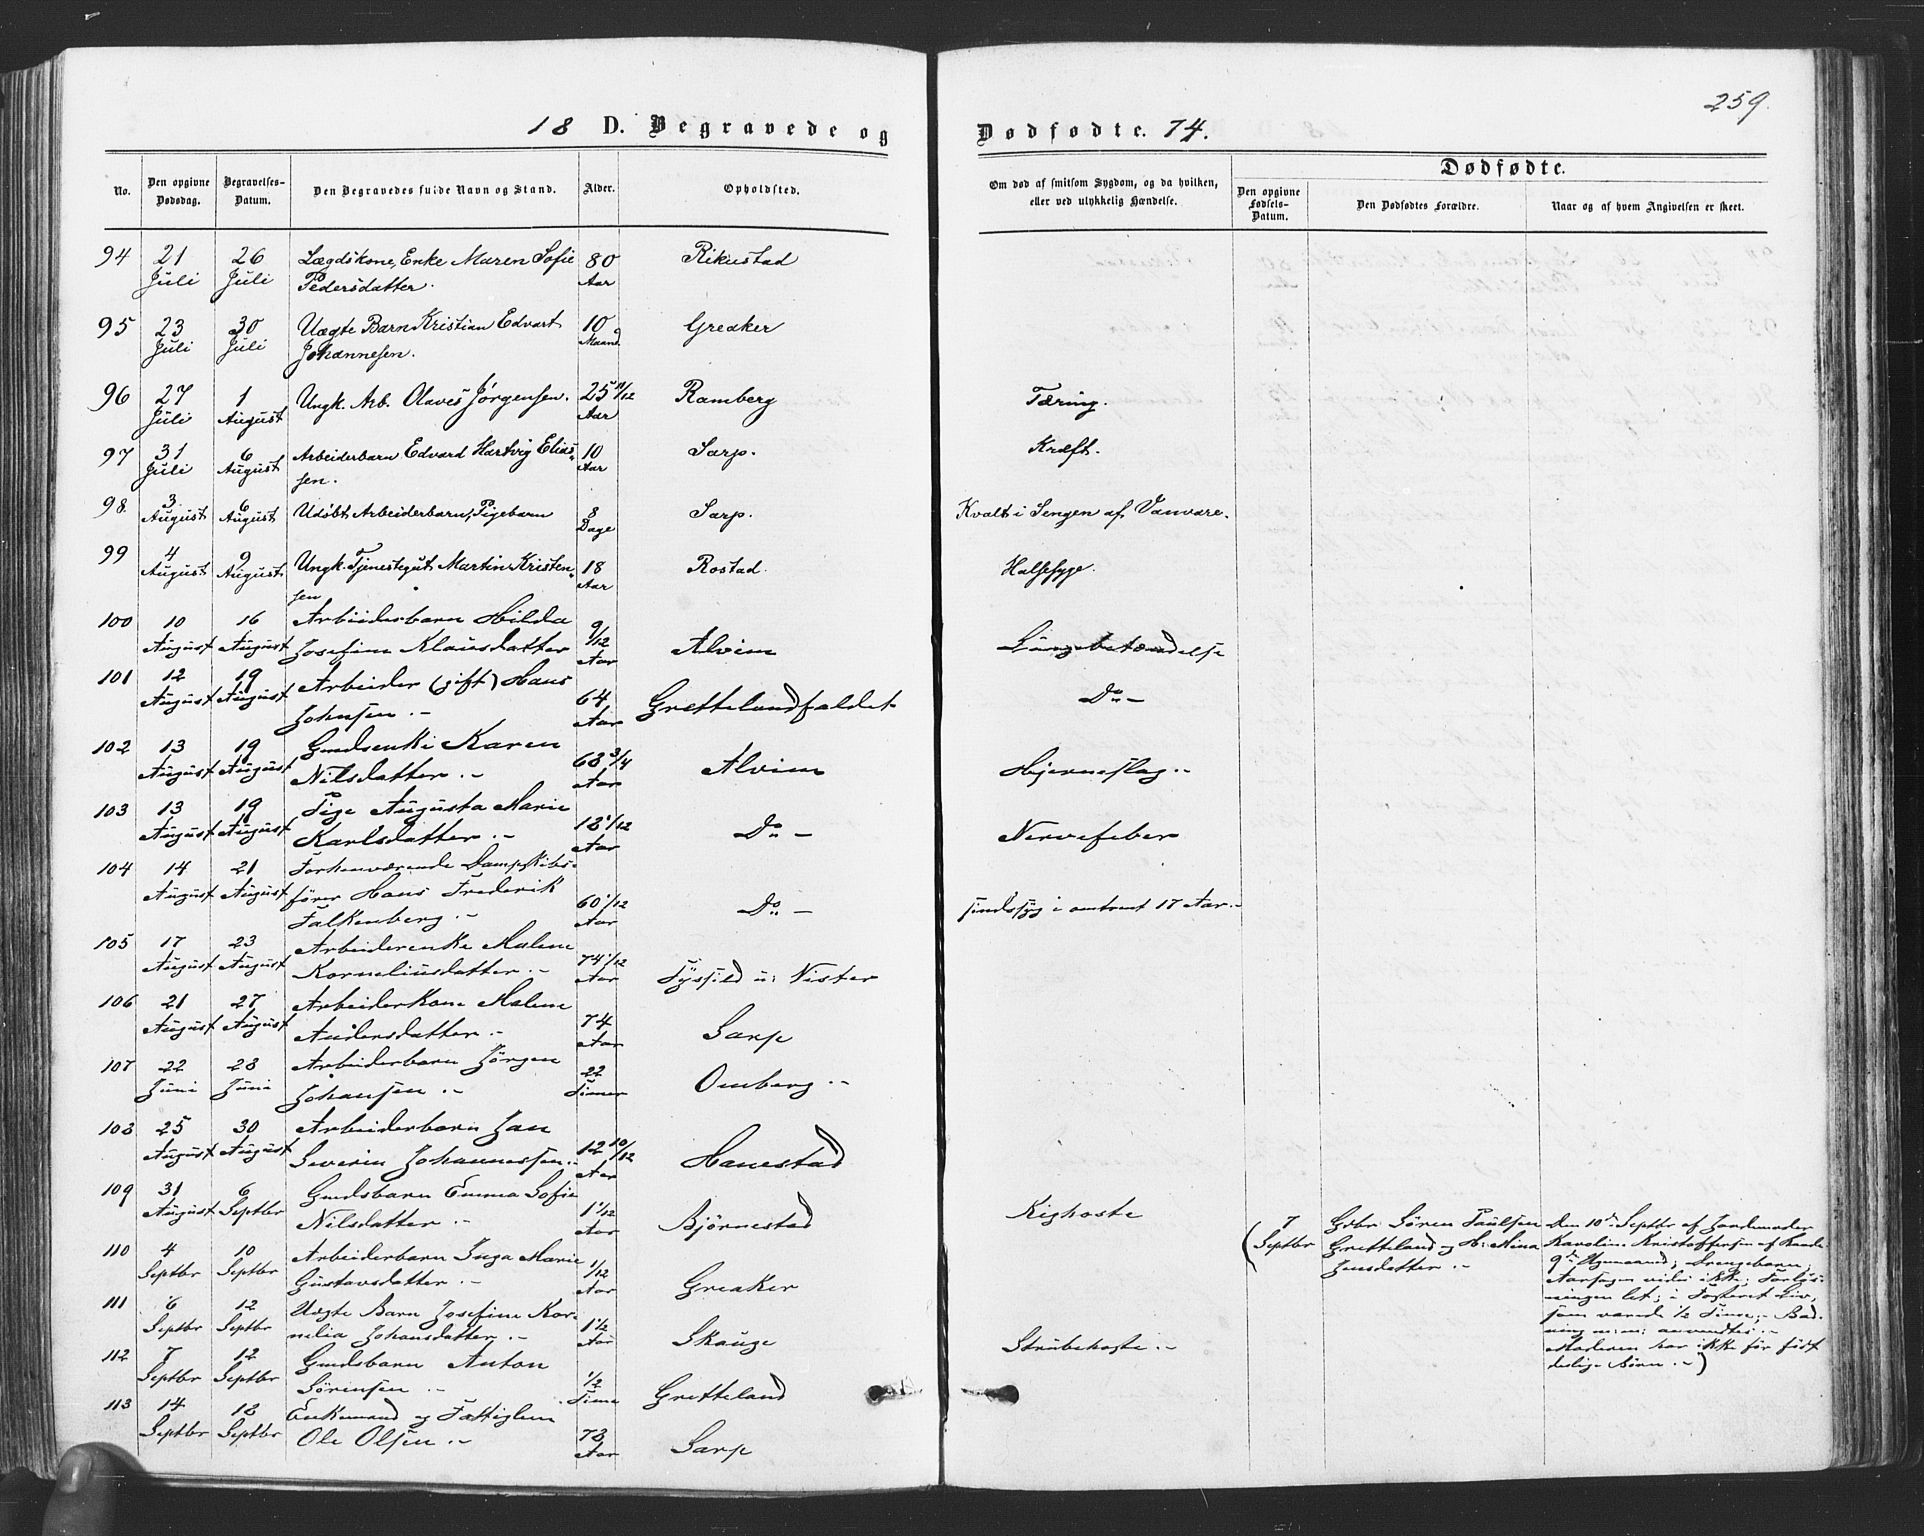 259.
18 D. Begravede og Dødfødte. 74.
No.
Den opgivne Dødsdag.
Begravelses-Datum.
Den Begravedes fulde Navn og Stand.
Alder.
Opholdsted.
Om død af smitsom Sygdom, og da hvilken,
eller ved ulykkelig Hændelse.
Dødfødte.
Den opgivne Fødsels-Datum.
Den Dødfødtes Forældre.
Naar og af hvem Angivelsen er skeet.
94 21 26 Lægdskone, Enke Maren Sofie 80 Rikustad
Juli Juli Pedersdatter. Aar
95 23 30 Uægte Barn Kristian Edvart 10 Greaker
Juli Juli Johannesen. Maand
96 27 1 Ungk. Arb. Olaves Jørgensen. 25 11/12 Ramberg Tæring.
Juli August Aar
97 31 6 Arbeiderbarn Edvard Hartvig Elias- 10 Sarp. Kræft.
Juli August sen. Aar
98. 3 6 Udøbt Arbeiderbarn, Pigebarn 8 Sarp. Kvalt i Sengen af Vanvare.
August August Dage
99 4 9 Ungk. Tjenestegut Martin Kristen- 18 Rostad. Halssyge.
August August sen Aar
100 10 16 Arbeiderbarn Hilda 9/12 Alvim Lungebetændelse
August August Josefine Klausdatter Aar
101 12 19 Arbeider (gift) Hans 64 Grettelandfaldet Do –
August August Johnsen .– Aar
102 13 19 Gmdsenke Karen 68 3/4 Alvim Hjerneslag .–
August August Nilsdatter .– Aar
103 13 19 Pige Augusta Marie 18 1/12 Do – Nervefeber
August August Karlsdatter .– Aar
104 14 21 Forhenværende Dampskibs-
August August fører Hans Frederik 60 1/12 Do – sindssyg i omtrent 17 Aar .–
Falkenberg .– Aar
105 17 23 Arbeiderenke Malene 74 1/12
August August Korneliusdatter .– Aar u: Nister
106 21 27 Arbeiderkone Malene 74 Sarp
August August Andersdatter .– Aar
107 22 28 Arbeiderbarn Jørgen 22 Omberg .–
Juni Juni Johansen .– Timer
108 25 30 Arbeiderbarn Jan 12 10/12 Hanestad
August August Severin Johannessen .– Aar
109 31 6 Gmdsbarn Emma Sofie 1 1/12 Bjørnestad Kighoste
August Septbr Nilsdatter .– Aar
110 4 10 Arbeiderbarn Inga Marie 1/12 Greaker
Septbr Septbr Gustavsdatter .– Aar
111 6 12 Uægte Barn Josefine Kor- 1 1/2 Skauge Strubehoste .–
Septbr Septbr nelia Johansdatter .– Aar
112 7 12 Gmdsbarn Anton 1/2 Gretteland
Septbr Septbr Sørensen .– Time
113 14 18 Enkemand og Fattiglem 73 Sarp
Septbr Septbr Ole Olsen .– Aar
( 7 Septbr
Gdbr. Søren Paulsen
Gretteland og H: Mina
Jensdatter .–
Den 10de Septbr af Jordemoder
Karoline Kristoffersen af
9de Drengebarn;
Aarsagen vides ikke; Forløs-
ningen let; i Fosteret Liv,
som varede 1/2 Time; Bad-
ning m: m: anvendtes .–
Moderen har ikke før født
delige Børn .–)